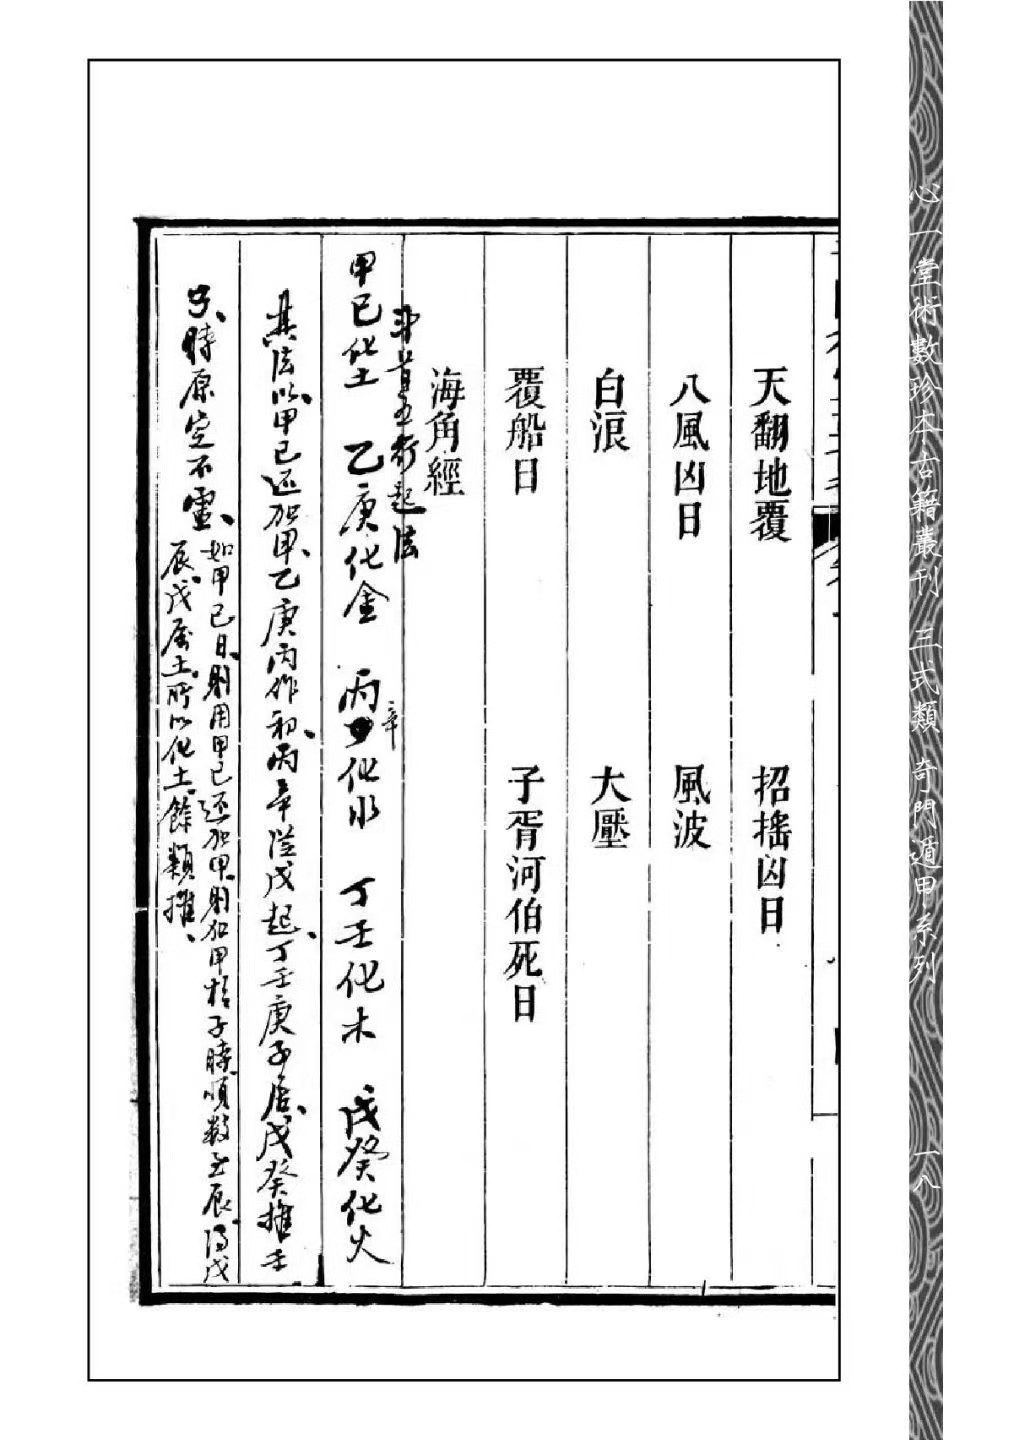 心一堂術數珍本古籍叢刊 三式類 奇門遁甲系列 一八
天翻地覆 招搖凶日
八風凶日 風波
白浪 大壓
覆船日 子胥河伯死日
海角經
斗首五行起法
甲己化土 乙庚化金 丙辛化水 丁壬化木 戊癸化火
其法以甲己还加甲、乙庚丙作初、丙辛從戊起、丁壬庚子居、戊癸推壬、
子、時原定不霊、
如甲己日、則用甲己还加甲、則加甲於子時順数至辰、得戊
辰、戊屬土、所以化土、餘類推、